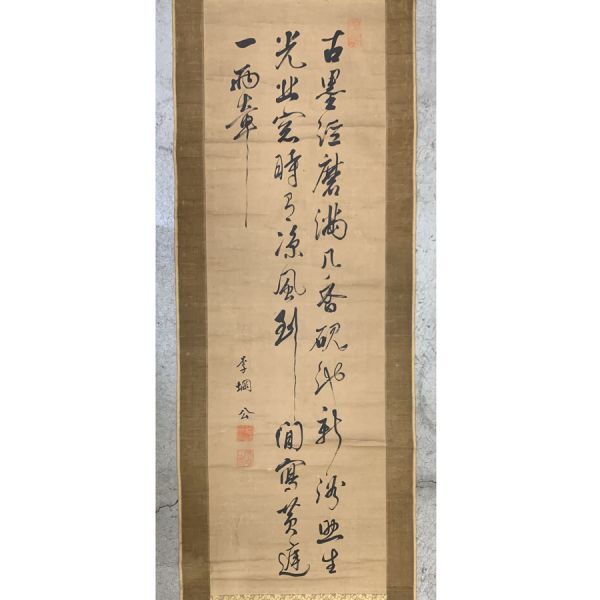 古墨輕磨滿几香硯池新浴照生
光北窓時有凉風到閒寫黄庭
一兩章
李堈公